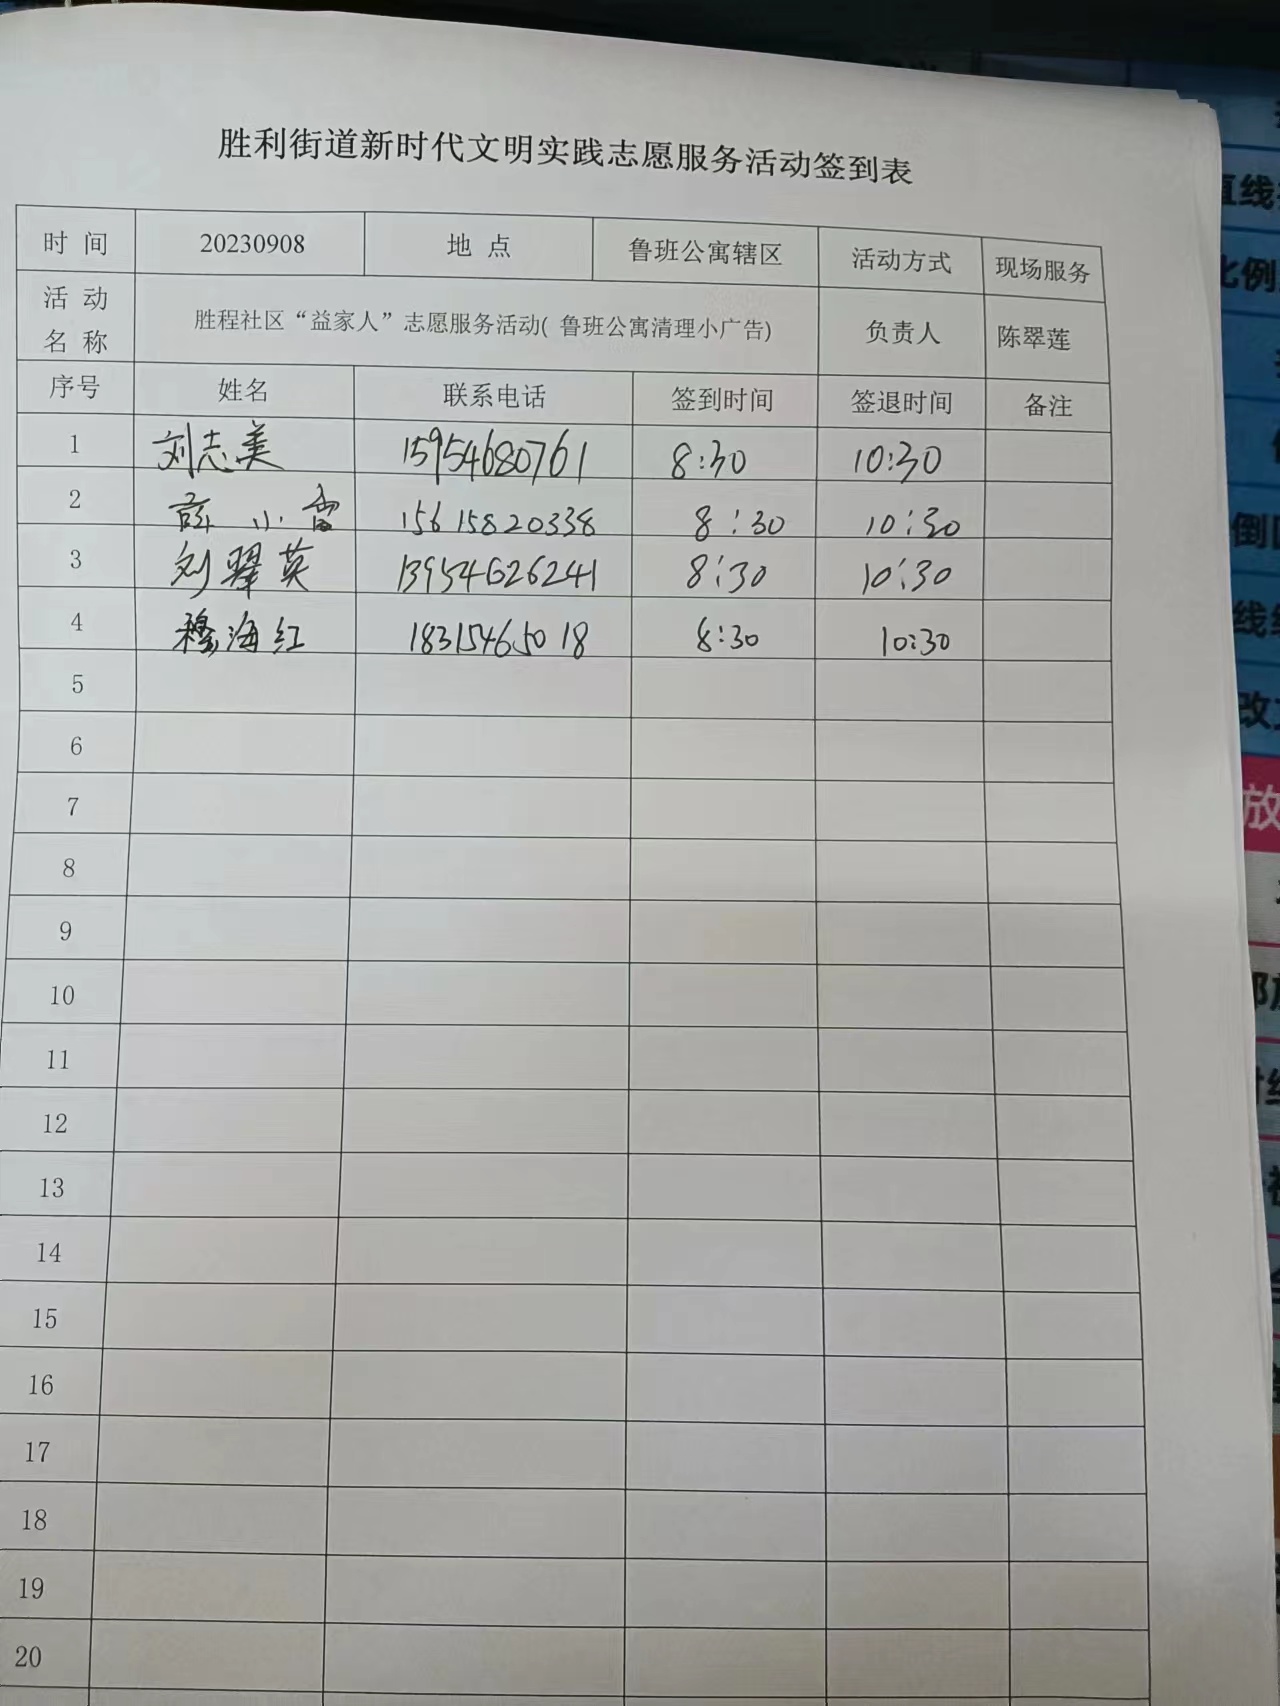 胜利街道新时代文明实践志愿服务活动签到表
时 间 20230908 地 点 鲁班公寓辖区 活动方式 现场服务
活 动
名 称 胜程社区“益家人”志愿服务活动( 鲁班公寓清理小广告) 负责人 陈翠莲
序号 姓名 联系电话 签到时间 签退时间 备注
1 刘志美 15954680761 8:30 10:30
2 小雷 15615820338 8:30 10:30
3 刘翠英 13954626241 8:30 10:30
4 穆海红 18315465018 8:30 10:30
5
6
7
8
9
10
11
12
13
14
15
16
17
18
19
20
直线
比例
倒
线
改
放